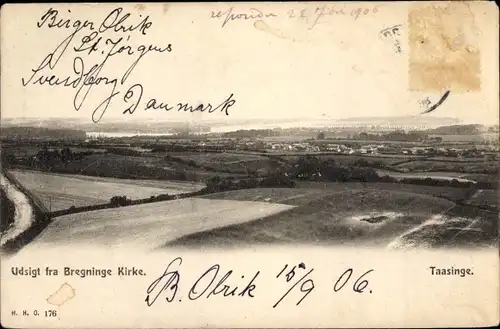 Birger Olrik
St. Jörgens
Svendborg
Danmark
Udsigt fra Bregninge Kirke.
Taasinge.
B. Olrik 15/9 06.
H. H. O. 176